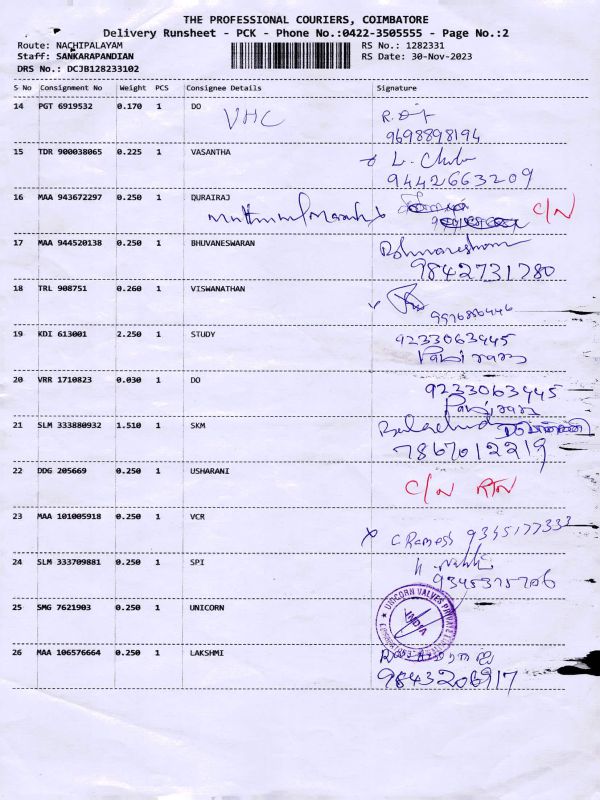 THE PROFESSIONAL COURIERS, COIMBATORE
Delivery Runsheet - PCK - Phone No.:0422-3505555 - Page No.:2
Route: NACHIPALAYAM RS No.: 1282331
Staff: SANKARAPANDIAN RS Date: 30-Nov-2023
DRS No.: DCJB128233102
S No Consignment No Weight PCS Consignee Details Signature
14 PGT 6919532 0.170 1 DO
VHC
9698898194
15 TDR 900038065 0.225 1 VASANTHA
9442663209
16 MAA 943672297 0.250 1 DURAIRAJ
C/N
17 MAA 944520138 0.250 1 BHUVANESWARAN
9842731780
18 TRL 908751 0.260 1 VISWANATHAN
9976886446
19 KDI 613001 2.250 1 STUDY
9233063445
20 VRR 1710823 0.030 1 DO
9233063445
21 SLM 333880932 1.510 1 SKM
7867012219
22 DDG 205669 0.250 1 USHARANI
C/N RTN
23 MAA 101005918 0.250 1 VCR
C Ramesh 9345177333
24 SLM 333709881 0.250 1 SPI
9345375706
25 SMG 7621903 0.250 1 UNICORN
UNICORN VALVES PRIVATE
INDIA
26 MAA 106576664 0.250 1 LAKSHMI
9843206917